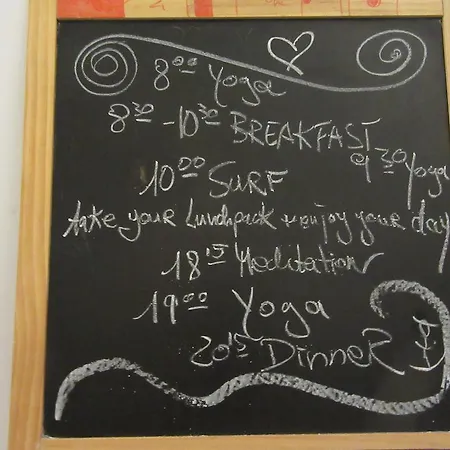 8⁰⁰ Yoga
8³⁰ - 10³⁰ BREAKFAST
9³⁰ Yoga
10⁰⁰ SURF
take your Lunchpack + enjoy your day
18¹⁵ Meditation
19⁰⁰ Yoga
20¹⁵ DinneR